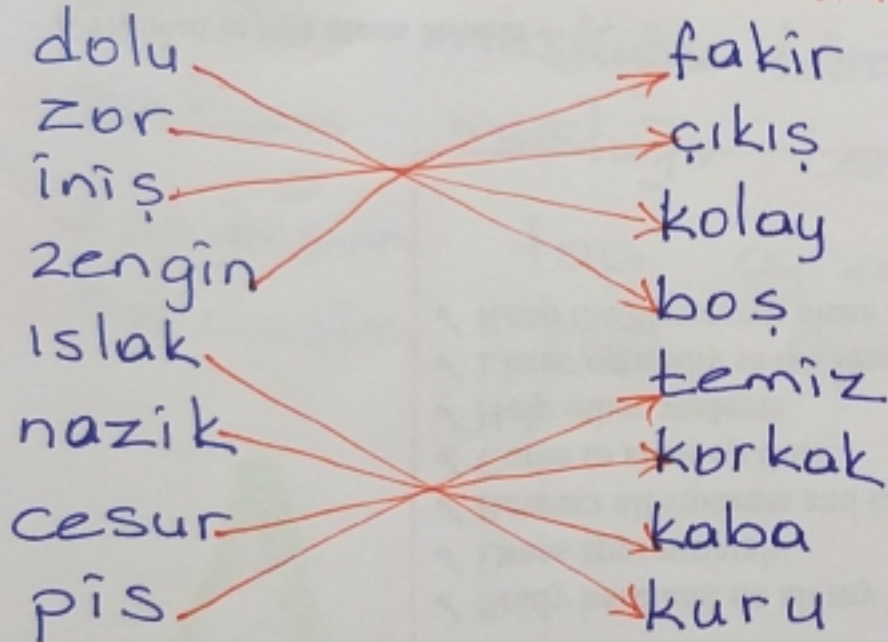 dolu
zor
iniş
zengin
ıslak
nazik
cesur
pis
fakir
çıkış
kolay
boş
temiz
korkak
kaba
kuru